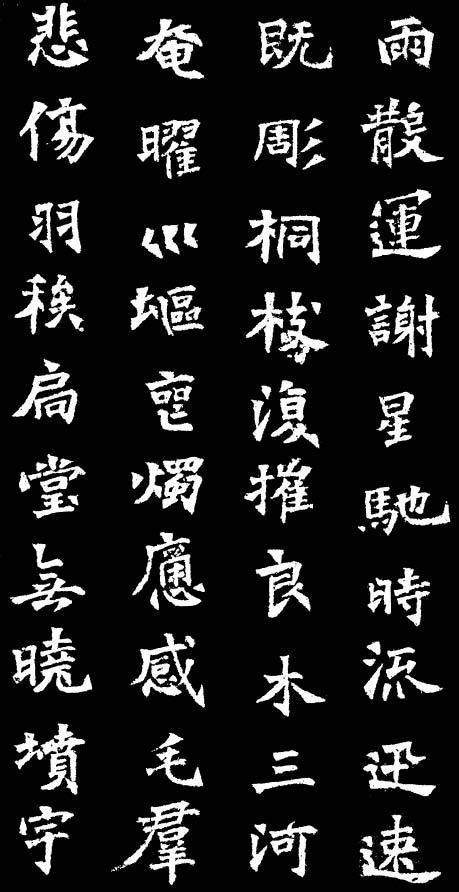 雨散運謝星馳時流迅速
既彫桐枝復摧良木三河
奄曜巛塸喪燭感毛羣
悲傷羽族扃堂無曉墳宇